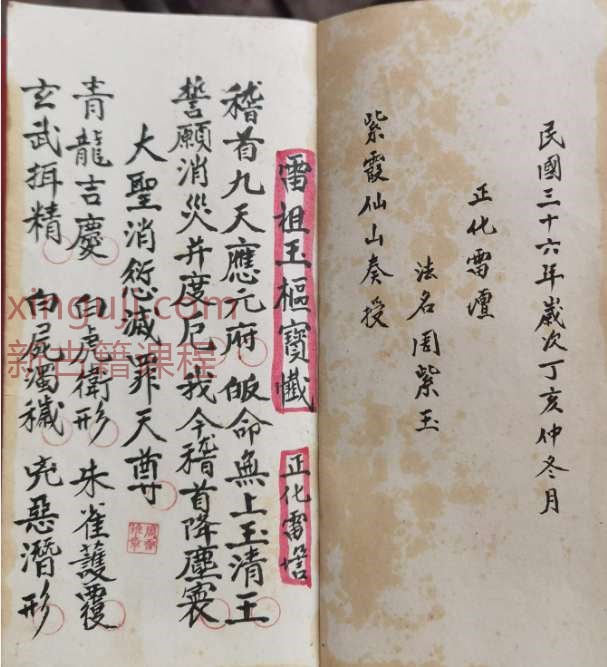 民國三十六年歲次丁亥仲冬月
正化雷壇
法名周紫玉
紫霞仙山奏授
雷祖玉樞寶懺 正化雷
稽首九天應元府 皈命無上玉清王
誓願消災并度厄 我今稽首降塵寰
大聖消愆滅罪天尊
青龍吉慶 白虎衛形 朱雀護覆
玄武揖精 白屍濁穢 兇惡潛形
xinguji.com
新古籍课程